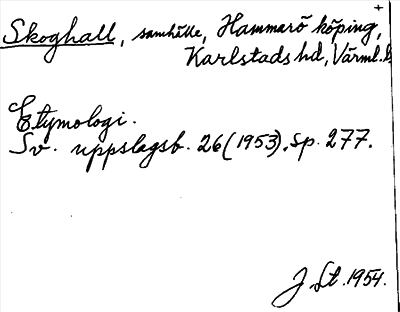 +
Skoghall, samhälle, Hammarö köping,
Karlstads hd, Värml. l
Etymologi.
Sv. uppslagsb. 26 (1953), sp. 277.
J St. 1954.